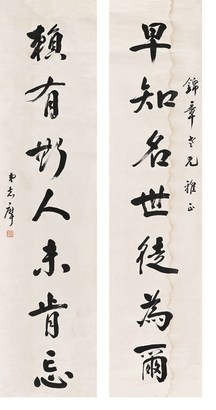 錦章老兄雅正
早知名世徒為爾
賴有斯人未肯忘
弟志摩